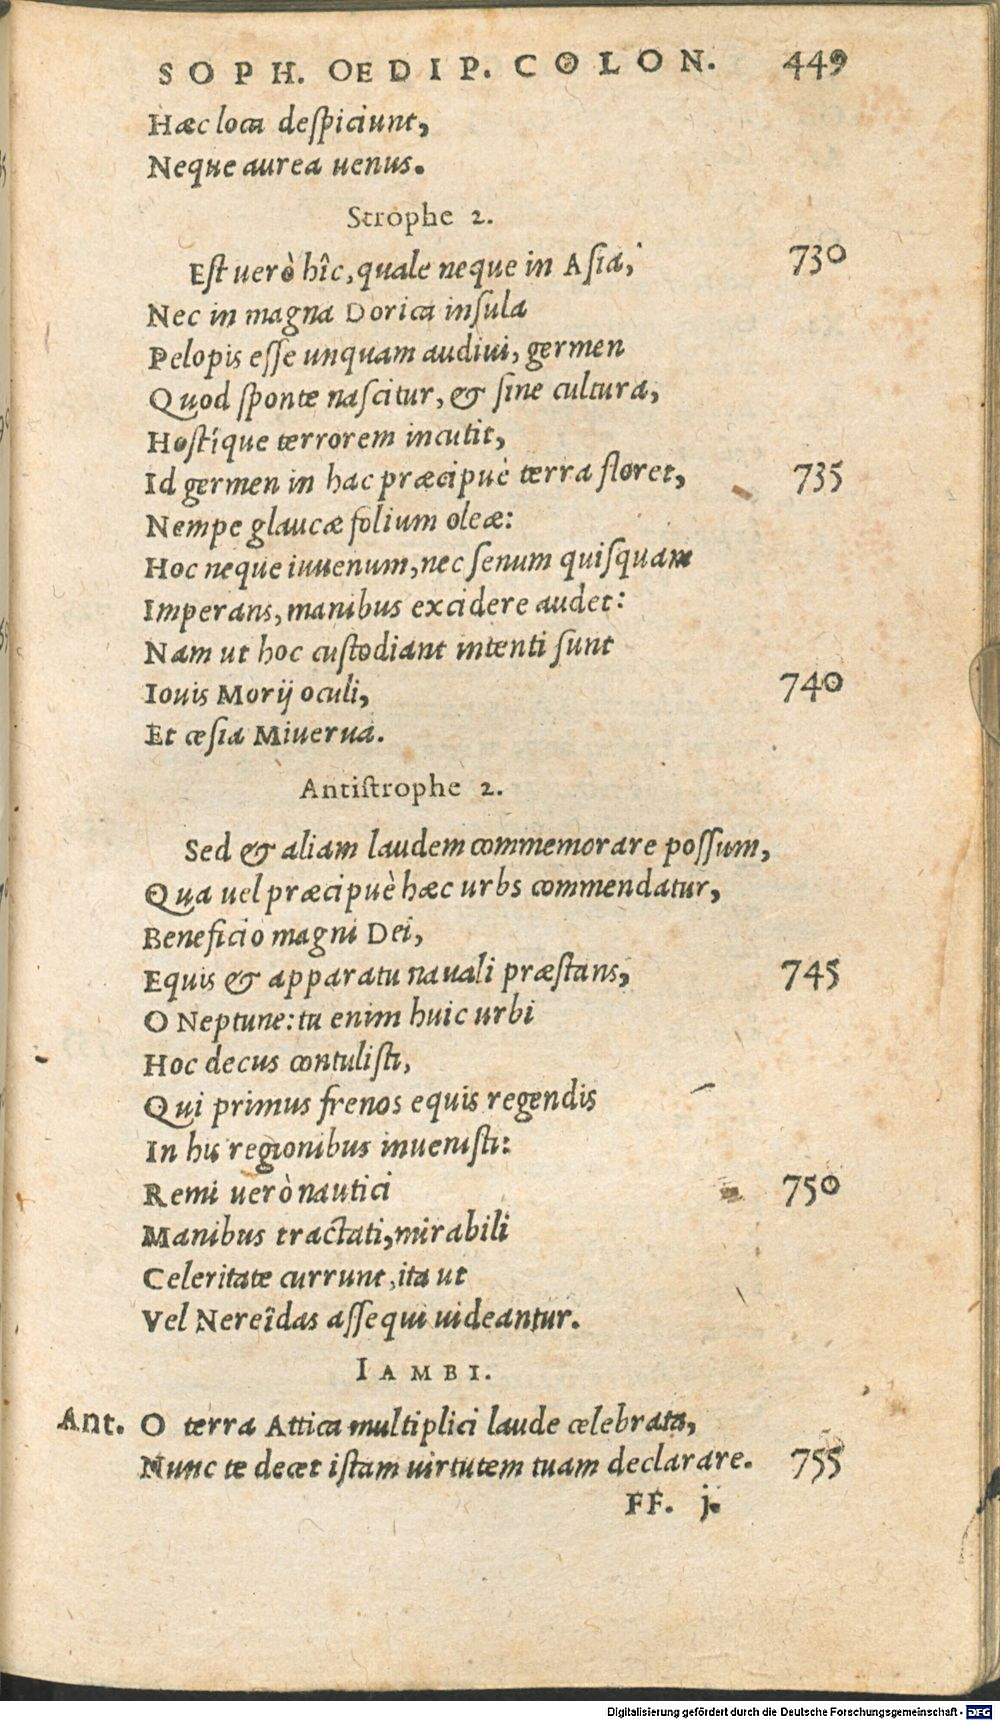 SOPH. OEDIP. COLON. 449
Hæc loca despiciunt,
Neque aurea uenus.
Strophe 2.
Est uerò hîc, quale neque in Asia, 730
Nec in magna Dorica insula
Pelopis esse unquam audiui, germen
Quod sponte nascitur, & sine cultura,
Hostíque terrorem incutit,
Id germen in hac præcipuè terra floret, 735
Nempe glaucæ folium oleæ:
Hoc neque iuuenum, nec senum quisquam
Imperans, manibus excidere audet:
Nam ut hoc custodiant intenti sunt
Iouis Morij oculi, 740
Et cæsia Miuerua.
Antistrophe 2.
Sed & aliam laudem commemorare possum,
Qua uel præcipuè hæc urbs commendatur,
Beneficio magni Dei,
Equis & apparatu nauali præstans, 745
O Neptune: tu enim huic urbi
Hoc decus contulisti,
Qui primus frenos equis regendis
In his regionibus inuenisti:
Remi uerò nautici 750
Manibus tractati, mirabili
Celeritate currunt, ita ut
Vel Nereîdas assequi uideantur.
IAMBI.
Ant. O terra Attica multiplici laude celebrata,
Nunc te decet istam uirtutem tuam declarare. 755
FF. j.
Digitalisierung gefördert durch die Deutsche Forschungsgemeinschaft - DFG